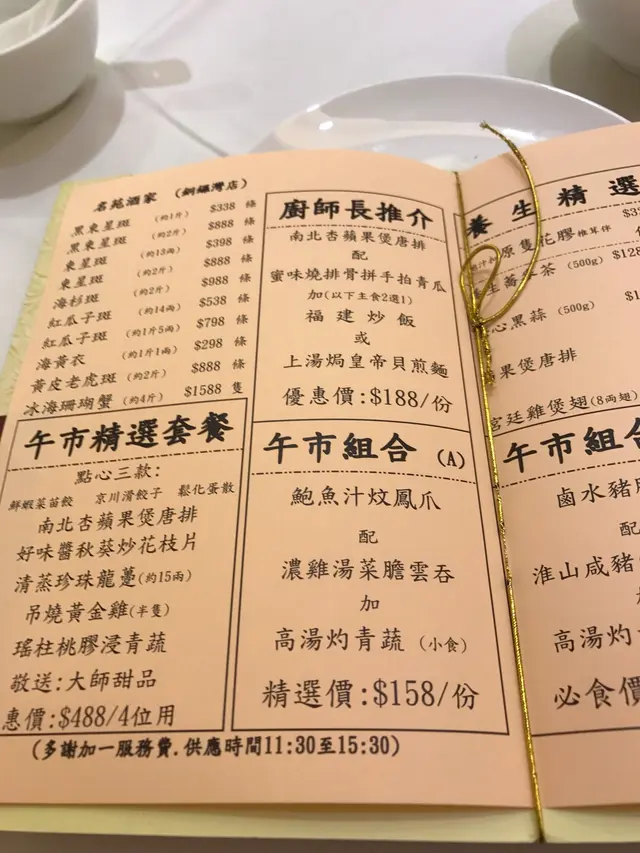 名苑酒家 (銅鑼灣店)
黑東星斑 (約1斤) $338 條
黑東星斑 (約2斤) $888 條
東星斑 (約13兩) $398 條
東星斑 (約2斤) $888 條
海杉斑 (約2斤) $988 條
紅瓜子斑 (約14兩) $538 條
紅瓜子斑 (約1斤5兩) $798 條
海黃衣 (約1斤1兩) $298 條
黃皮老虎斑 (約2斤) $888 條
冰海珊瑚蟹 (約4斤) $1588 隻
午市精選套餐
點心三款:
鮮蝦菜苗餃 京川滑餃子 鬆化蛋散
南北杏蘋果煲唐排
好味醬秋葵炒花枝片
清蒸珍珠龍躉(約15兩)
吊燒黃金雞(半隻)
瑤柱桃膠浸青蔬
敬送:大師甜品
惠價:$488/4位用
廚師長推介
南北杏蘋果煲唐排
配
蜜味燒排骨拼手拍青瓜
加(以下主食2選1)
福建炒飯
或
上湯焗皇帝貝煎麵
優惠價:$188/份
午市組合 (A)
鮑魚汁炆鳳爪
配
濃雞湯菜膽雲吞
加
高湯灼青蔬 (小食)
精選價:$158/份
(多謝加一服務費.供應時間11:30至15:30)
養生精選
原隻花膠 $3
茶 (500g) $128
心黑蒜 (500g) $1
果煲唐排
宮廷雞煲翅(8両翅)
午市組合
鹵水豬
配
淮山咸豬
高湯灼青
必食價